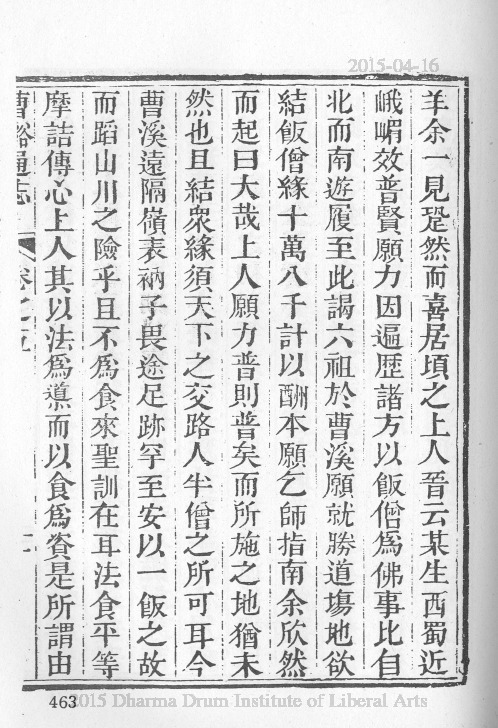 2015-04-16
羊余一見跫然而喜居頃之上人晉云某生西蜀近
峨嵋效普賢願力因遍歷諸方以飯僧爲佛事比自
北而南遊履至此謁六祖於曹溪願就勝道場地欲
結飯僧緣十萬八千計以酬本願乞師指南余欣然
而起曰大哉上人願力普則普矣而所施之地猶未
然也且結衆緣須天下之交路人半僧之所可耳今
曹溪遠隔嶺表衲子畏途足跡罕至安以一飯之故
而蹈山川之險乎且不爲食來聖訓在耳法食平等
摩詰傳心上人其以法爲蘖而以食爲資是所謂由
曹谿通志 卷之五 二
463
2015 Dharma Drum Institute of Liberal Arts